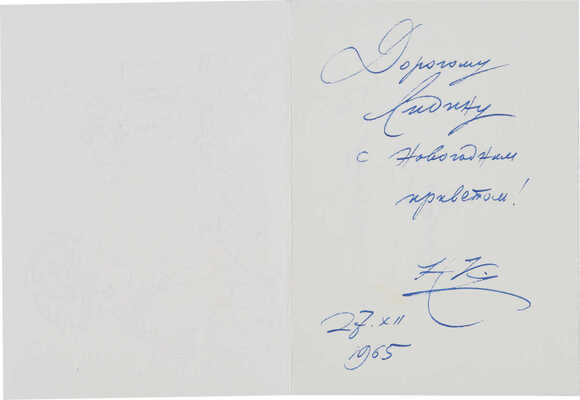 Дорогому
Лидину
с Новогодним
приветом!
Н К.
27.XII
1965